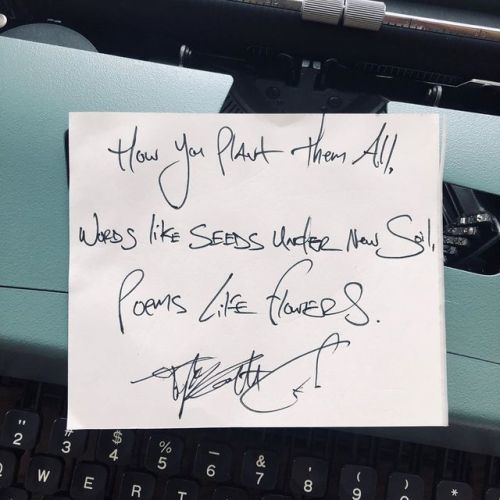 How You Plant Them All,
Words like Seeds Under New Soil,
Poems Like Flowers.
" # $ % - & ' ( )
2 3 4 5 6 7 8 9
Q W E R